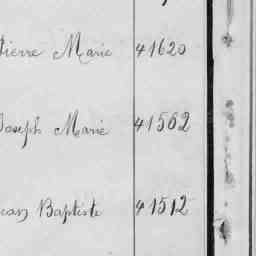 Pierre Marie 41620
Joseph Marie 41562
Jean Baptiste 41512